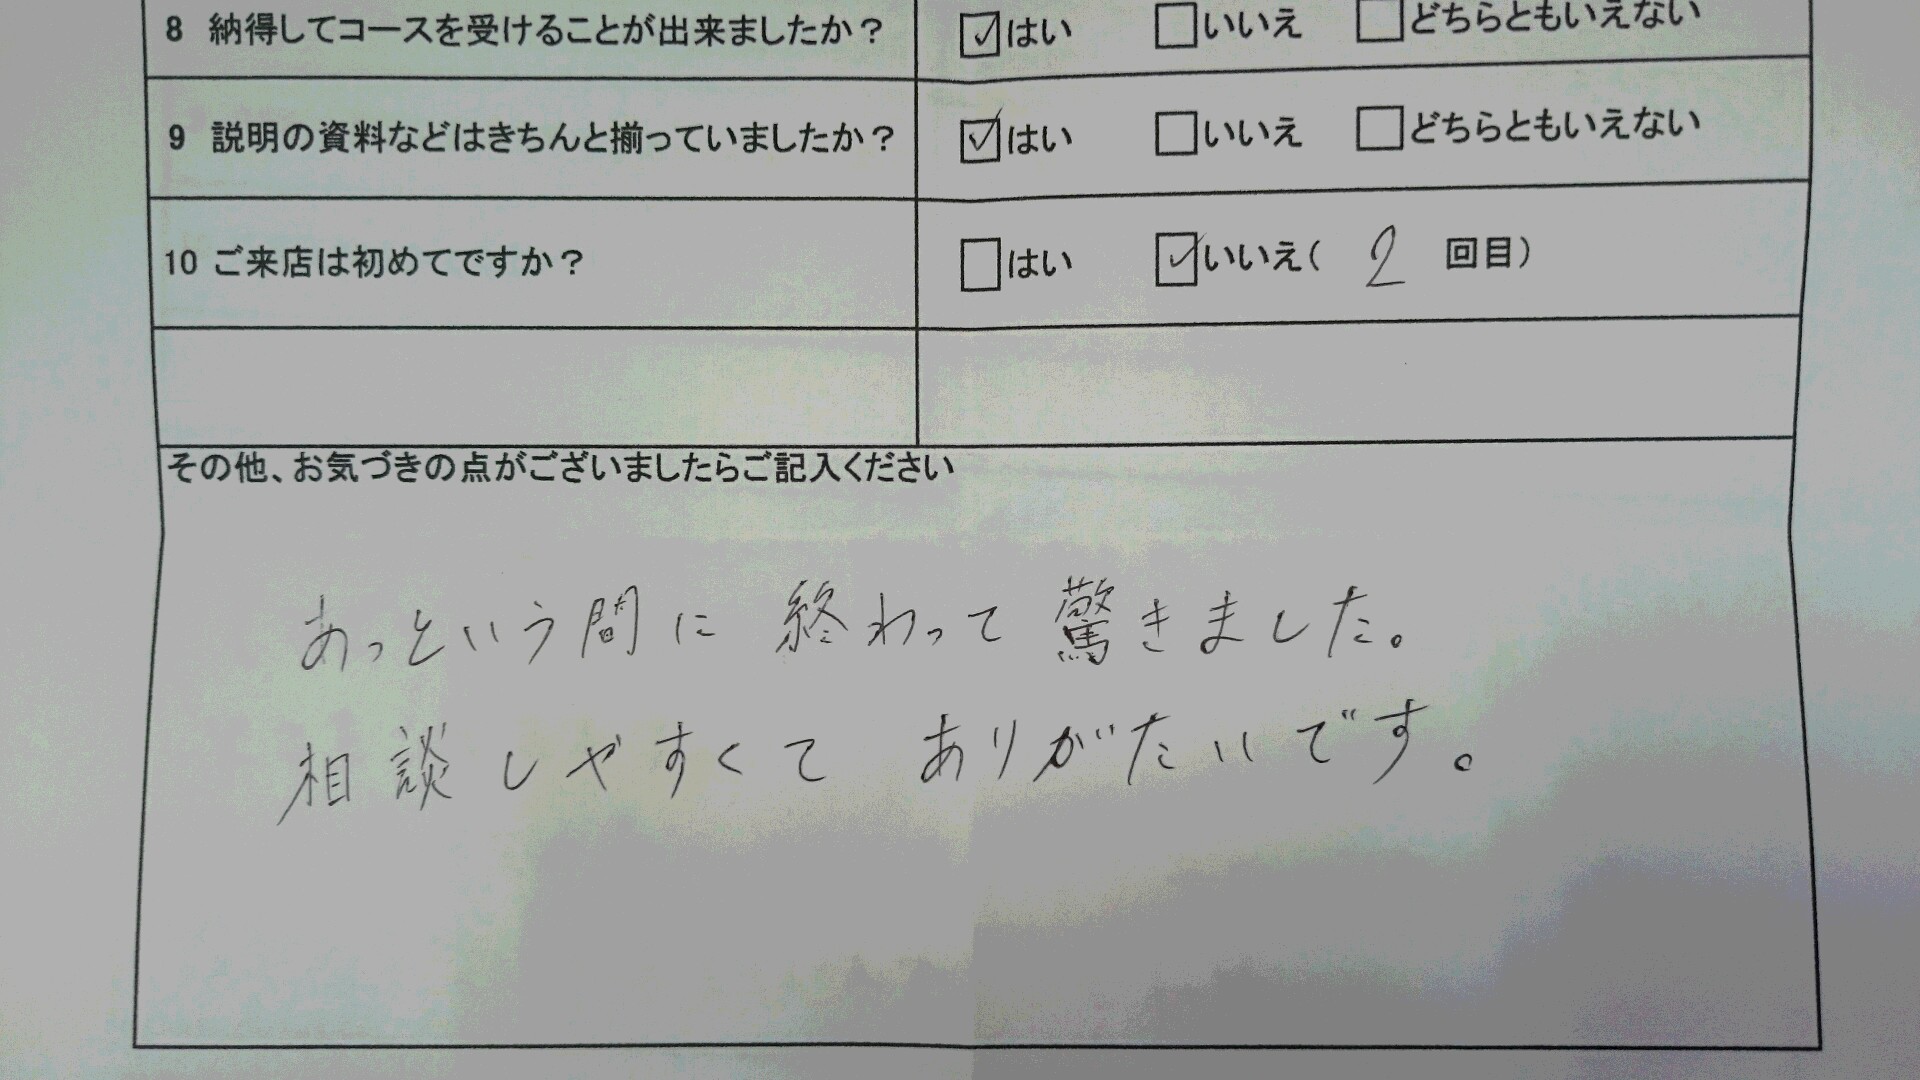 8 納得してコースを受けることが出来ましたか? ☑はい □いいえ □どちらともいえない
9 説明の資料などはきちんと揃っていましたか? ☑はい □いいえ □どちらともいえない
10 ご来店は初めてですか? □はい ☑いいえ( 2 回目)
その他、お気づきの点がございましたらご記入ください
あっという間に 終わって 驚きました。
相談しやすくて ありがたいです。